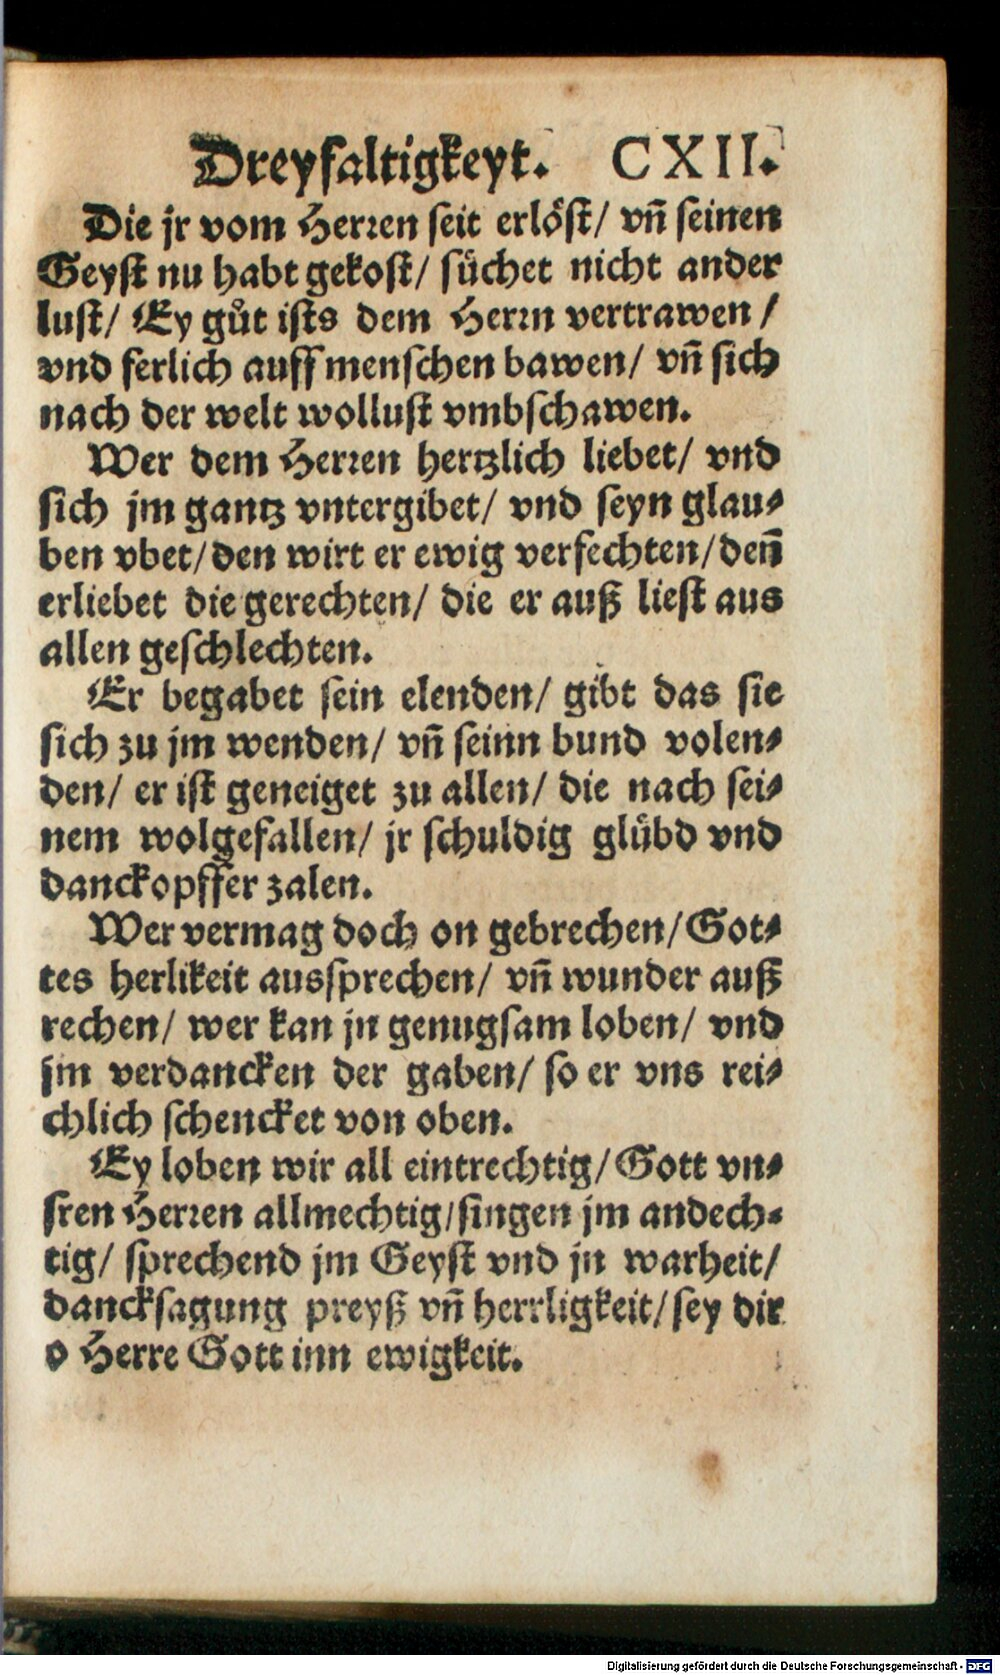 Dreyfaltigkeyt. CXII.
Die jr vom Herren seit erlöst/ vñ seinen
Geyst nu habt gekost/ süchet nicht ander
lust/ Ey gůt ists dem Herrn vertrawen/
vnd ferlich auff menschen bawen/ vñ sich
nach der welt wollust vmbschawen.
Wer dem Herren hertzlich liebet/ vnd
sich jm gantz vntergibet/ vnd seyn glau⸗
ben vbet/ den wirt er ewig verfechten/ deñ
erliebet die gerechten/ die er auß liest aus
allen geschlechten.
Er begabet sein elenden/ gibt das sie
sich zu jm wenden/ vñ seinn bund volen⸗
den/ er ist geneiget zu allen/ die nach sei⸗
nem wolgefallen/ jr schuldig glübd vnd
danckopffer zalen.
Wer vermag doch on gebrechen/ Got⸗
tes herlikeit aussprechen/ vñ wunder auß
rechen/ wer kan jn genugsam loben/ vnd
jm verdancken der gaben/ so er vns rei⸗
chlich schencket von oben.
Ey loben wir all eintrechtig/ Gott vn⸗
sren Herren allmechtig/ singen jm andech⸗
tig/ sprechend jm Geyst vnd jn warheit/
dancksagung preyß vñ herrligkeit/ sey dir
o Herre Gott inn ewigkeit.
Digitalisierung gefördert durch die Deutsche Forschungsgemeinschaft - DFG